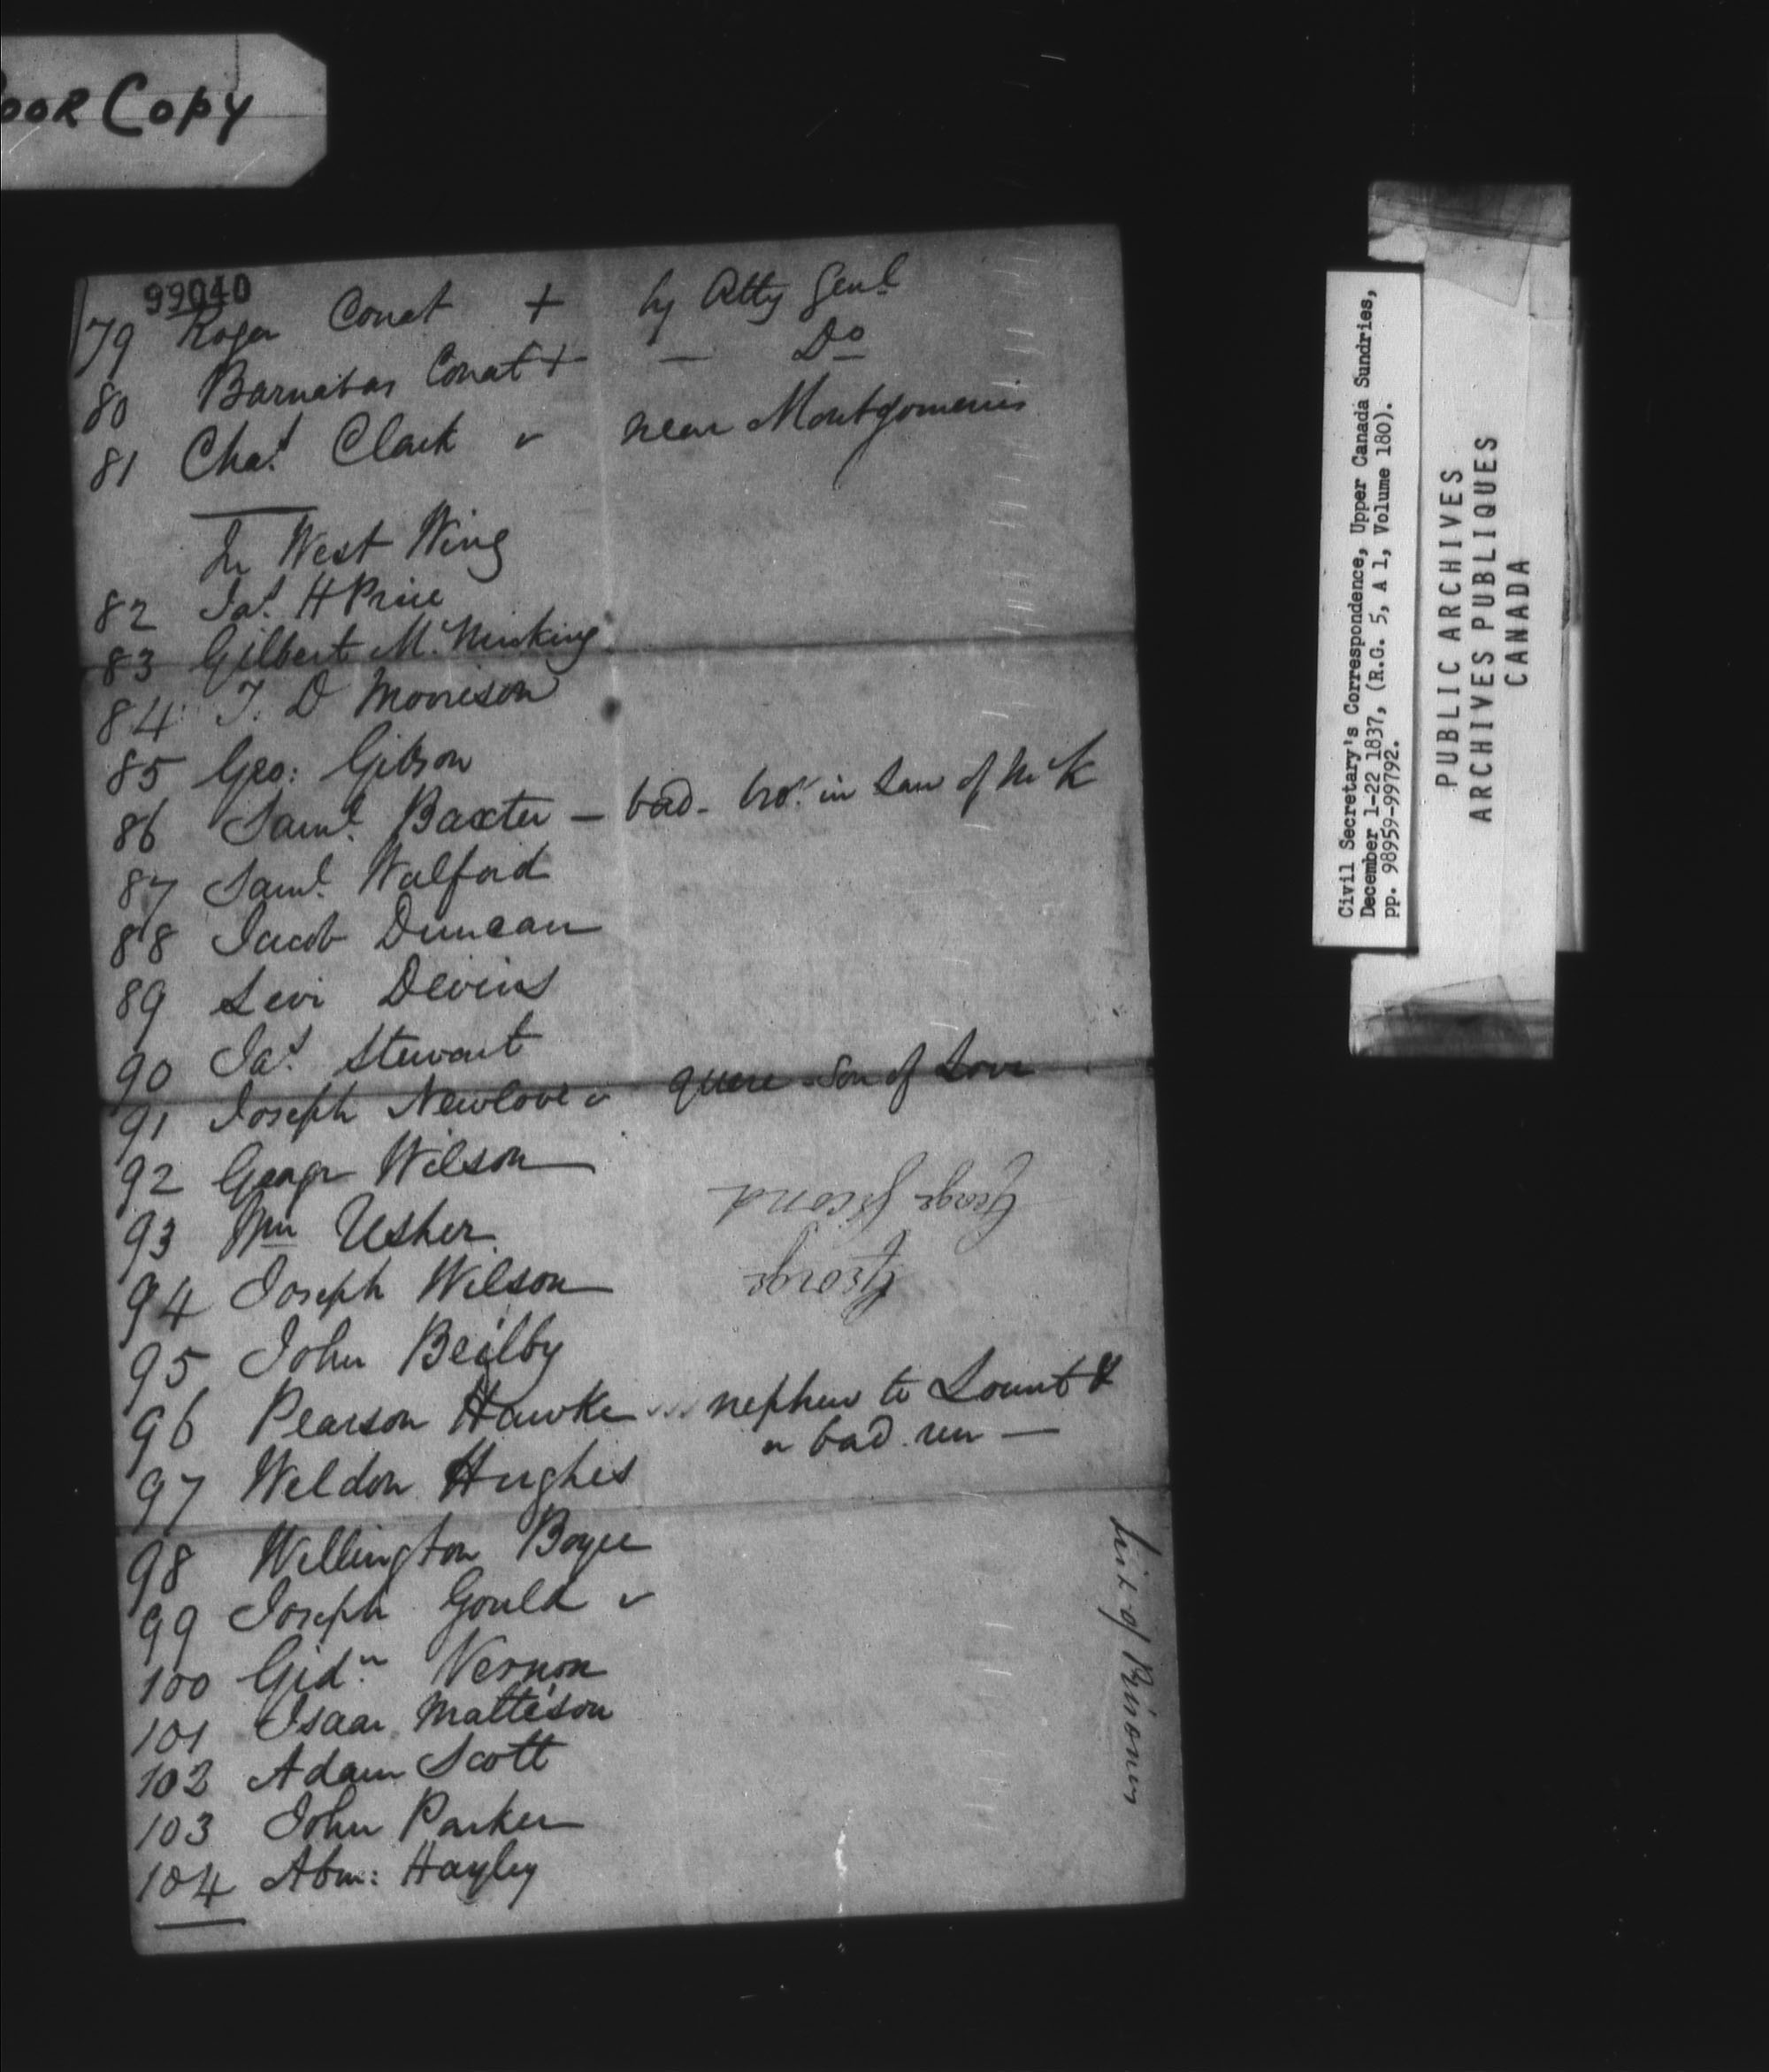 OOR COPY
99040
79 Roger Conat + by Atty Genl
80 Barnabas Conat + — Do
81 Chas. Clark v near Montgomeries
In West Wing
82 Jas. H Price
83 Gilbert McMicking
84 T. D Morrison
85 Geo: Gibson
86 Saml. Baxter — bad - bror. in Law of McK
87 Saml. Walford
88 Jacob Duncan
89 Levi Devins
90 Jas. Stewart
91 Joseph Newlove v quere - Son of Love
92 George Wilson
George Second
93 Wm Usher
George
94 Joseph Wilson
95 John Beilby
96 Pearson Hawke nephew to Lount &
a bad
97 Weldon Hughes
98 Wellington Boyce
99 Joseph Gould v
100 Gidn Vernon
101 Isaac Matteson
102 Adam Scott
103 John Parker
104 Abm: Hayley
List of Prisoners
Civil Secretary's Correspondence, Upper Canada Sundries,
December 1-22 1837, (R.G. 5, A 1, Volume 180).
pp. 98959-99792.
PUBLIC ARCHIVES
ARCHIVES PUBLIQUES
CANADA